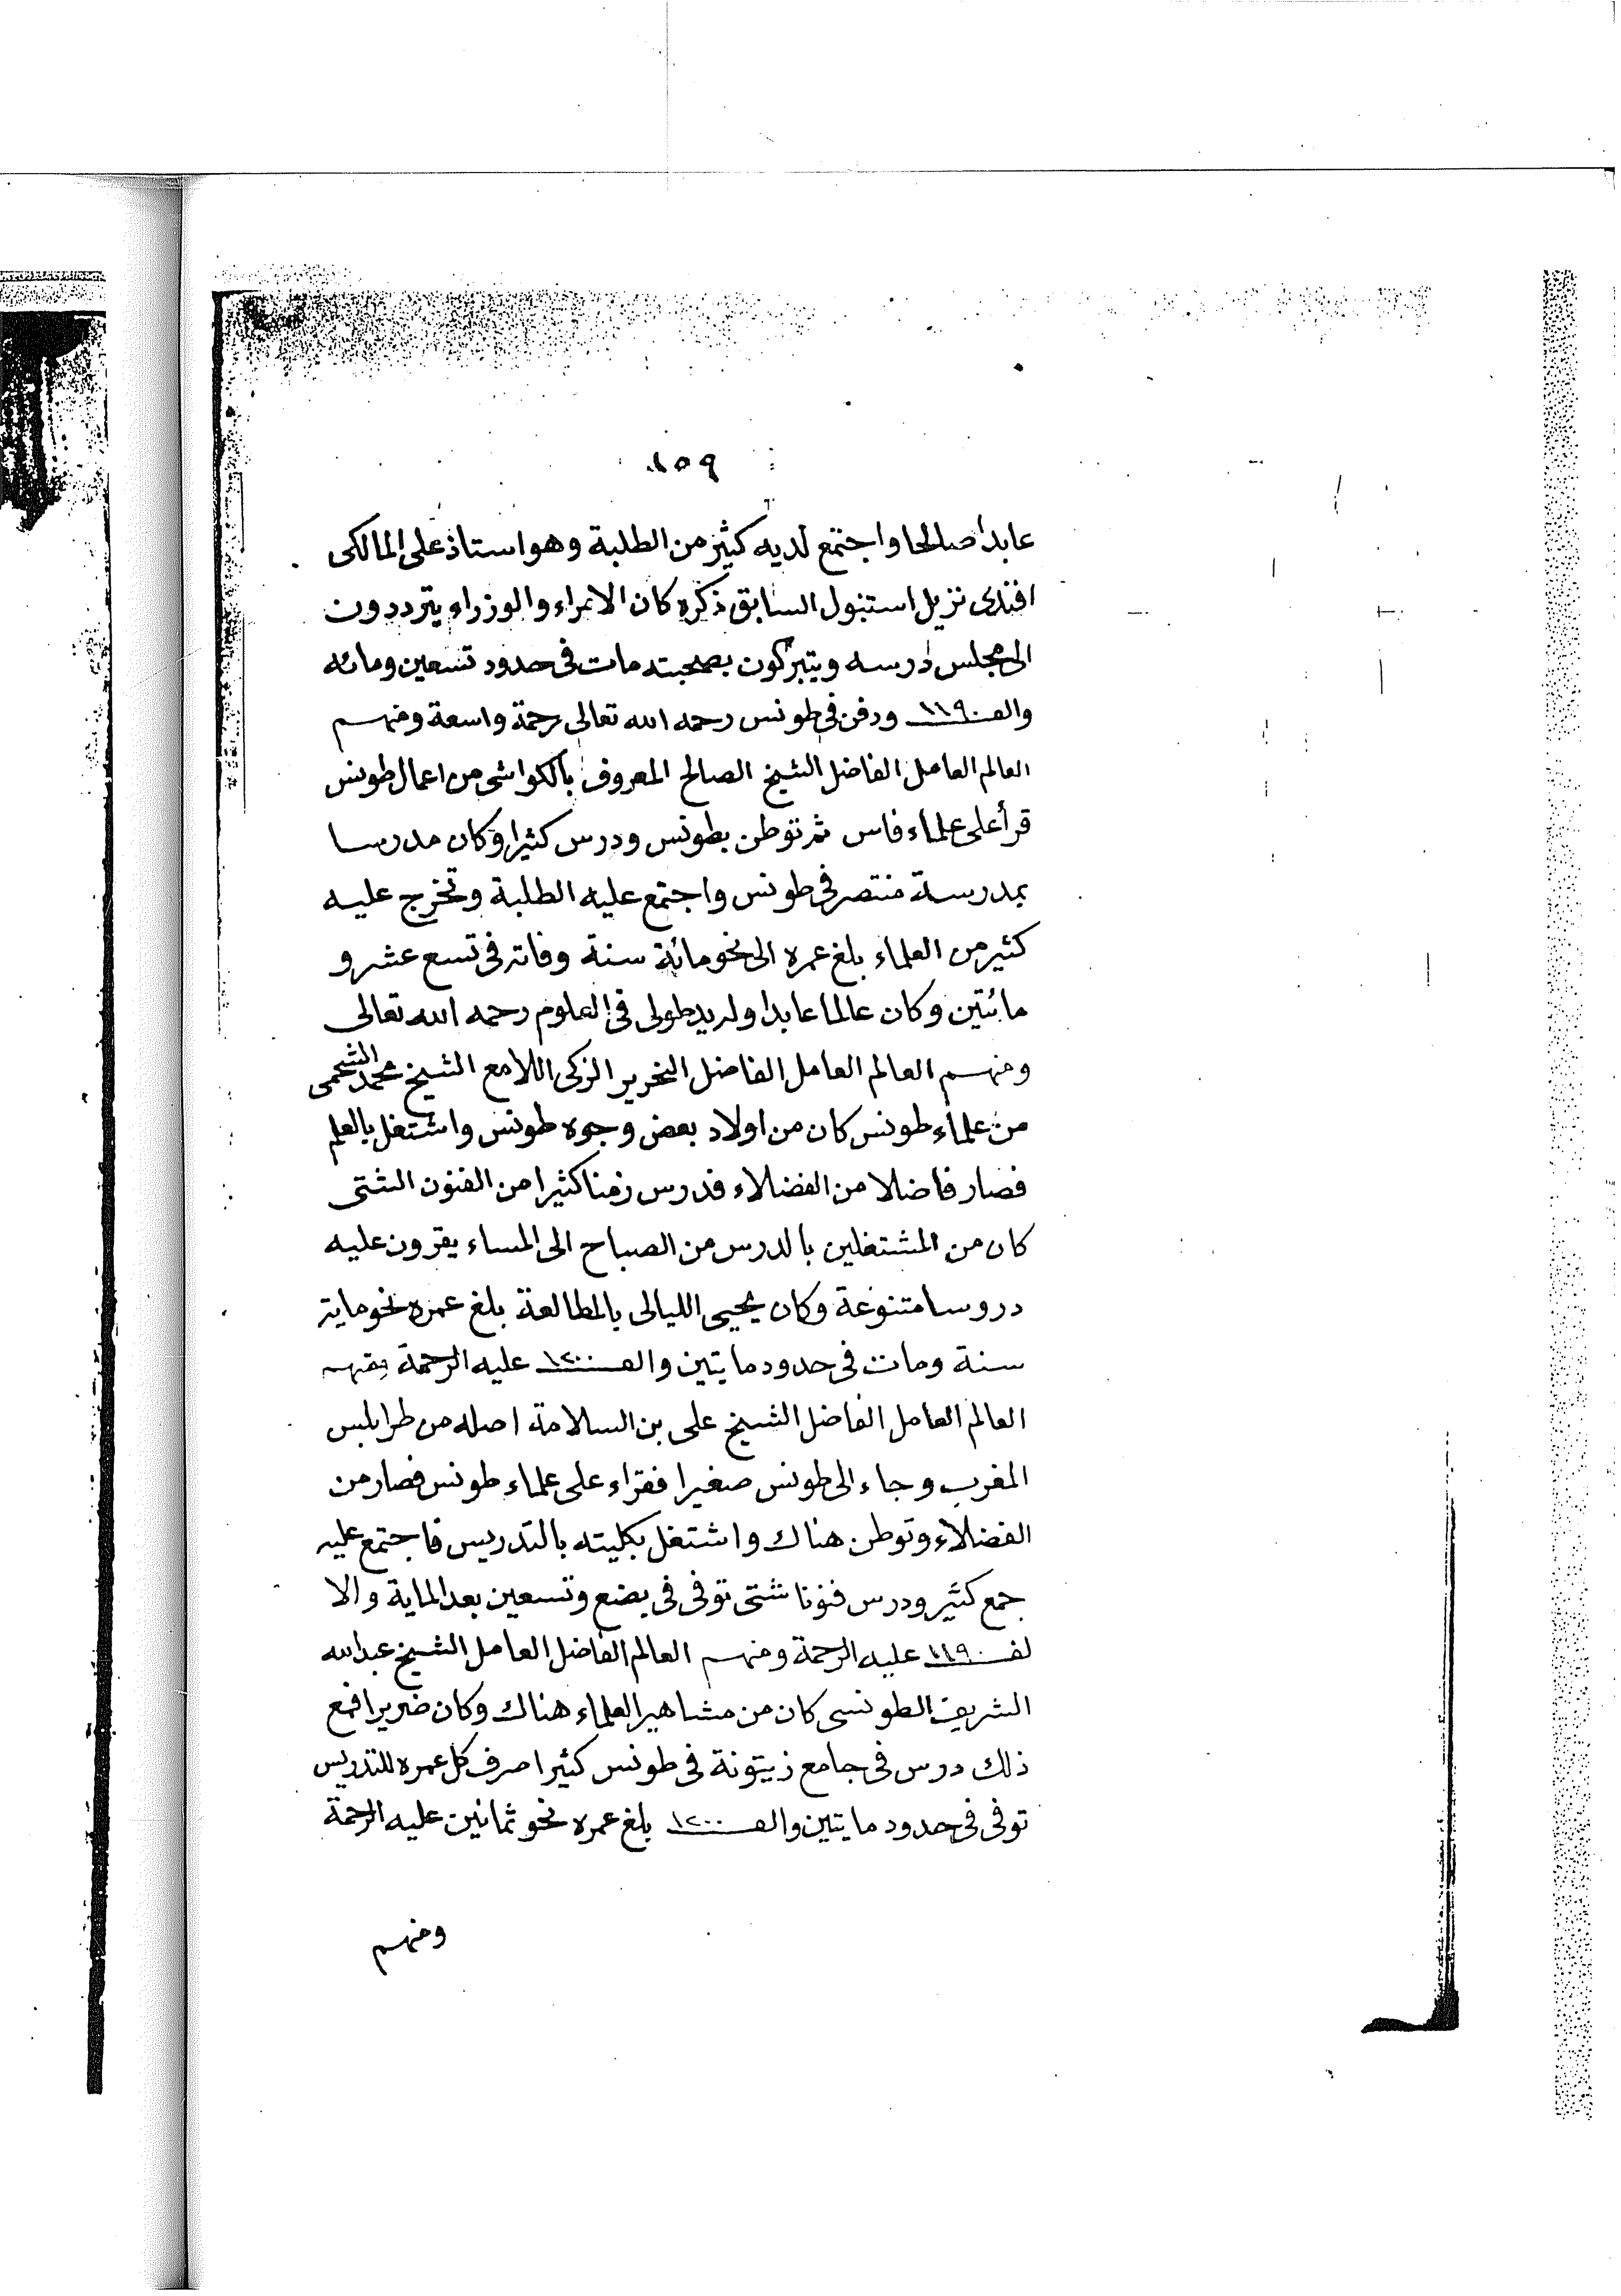 ١٥٩
عابدا صالحا واجتمع لديه كثير من الطلبة وهو استاذ على المالكى
افندى نزيل استنبول السابق ذكره كان الامراء والوزراء يترددون
الى مجلس درسه ويتبركون بصحبته مات فى حدود تسعين ومائه
والف ١١٩٠ ودفن فى طونس رحمه الله تعالى رحمة واسعة ومنهم
العالم العامل الفاضل الشيخ الصالح المعروف بالكواشى من اعمال طونس
قرأ على علماء فاس ثم توطن بطونس ودرس كثيرا وكان مدرسا
بمدرسة منتصر فى طونس واجتمع عليه الطلبة وتخرج عليه
كثير من العلماء بلغ عمره الى نحو مائة سنة وفاته فى تسع عشر و
مائتين وكان عالما عابدا وله يد طولى فى العلوم رحمه الله تعالى
ومنهم العالم العامل الفاضل النحرير الزكى اللامع الشيخ محمد الشحمى
من علماء طونس كان من اولاد بعض وجوه طونس واشتغل بالعلم
فصار فاضلا من الفضلاء فدرس زمنا كثيرا من الفنون الشتى
كان من المشتغلين بالدرس من الصباح الى المساء يقرون عليه
دروسا متنوعة وكان يحيى الليالى بالمطالعة بلغ عمره نحو ماية
سنة ومات فى حدود مايتين والف ١٢٠٠ عليه الرحمة ومنهم
العالم العامل الفاضل الشيخ على بن السلامة اصله من طرابلس
المغرب وجاء الى طونس صغيرا فقراء على علماء طونس فصار من
الفضلاء وتوطن هناك واشتغل بكليته بالتدريس فاجتمع عليه
جمع كثير ودرس فنونا شتى توفى فى بضع وتسعين بعد الماية والا
لف ١١٩٠ عليه الرحمة ومنهم العالم الفاضل العامل الشيخ عبد الله
الشريف الطونسى كان من مشاهير العلماء هناك وكان ضريرا فمع
ذلك درس فى جامع زيتونة فى طونس كثيرا صرف كل عمره للتدريس
توفى فى حدود مايتين والف ١٢٠٠ بلغ عمره نحو ثمانين عليه الرحمة
ومنهم